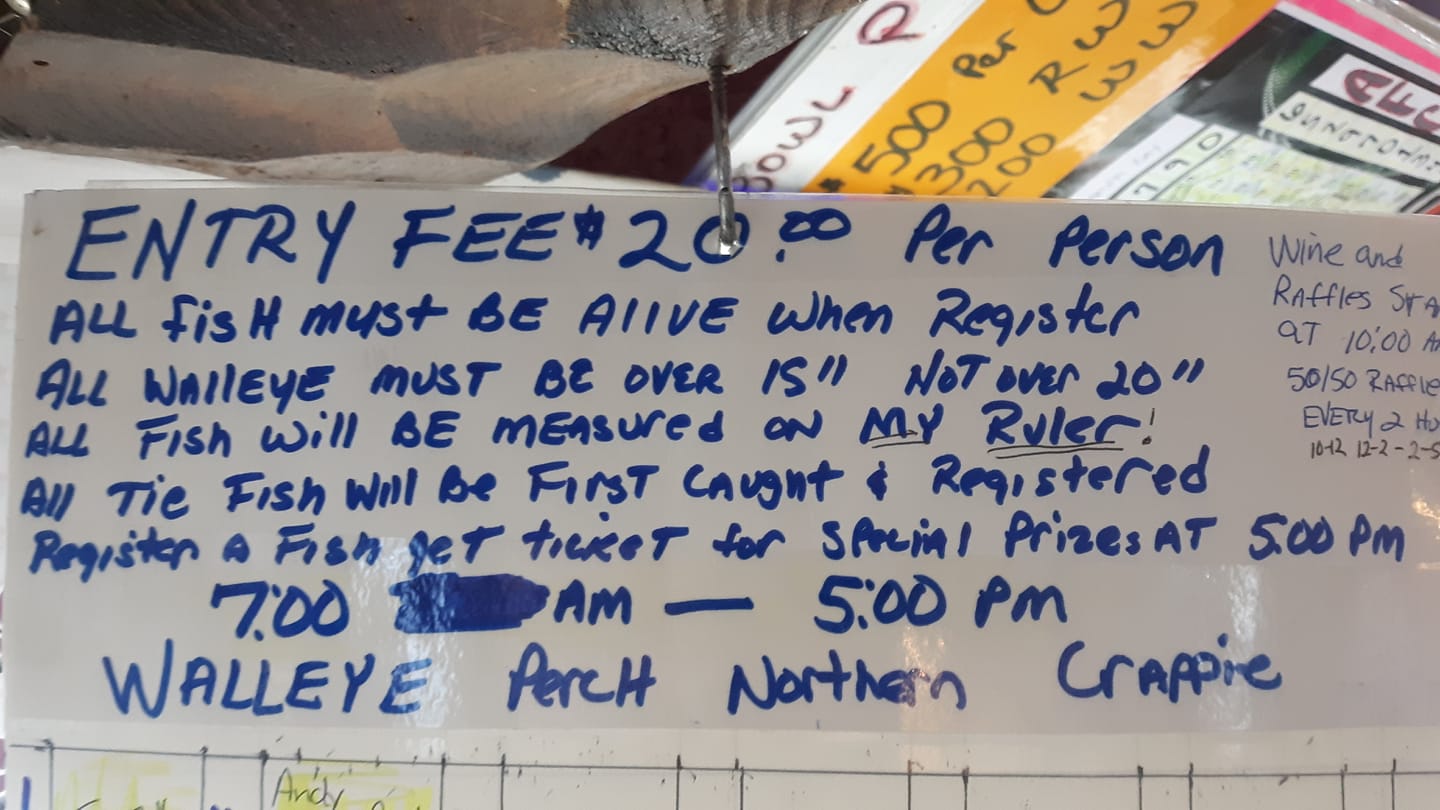 BOWL
$500 Per
300 R W
200 W W
AFC
ENTRY FEE $20.00 Per Person
ALL fisH must BE AlIVE when Register
ALL WAllEYE MUST BE OVER 15" NOT OVER 20"
ALL Fish Will BE MEASured ON MY Ruler!
All Tie Fish Will Be First Caught & Registered
Register a Fish get ticket for special Prizes AT 5:00 PM
7:00 AM — 5:00 PM
WALLEYE PercH Northern Crappie
Wine and
RAffles
at 10:00
50/50 RAffle
EVERY 2
10-12 12-2 - 2-5
Andy